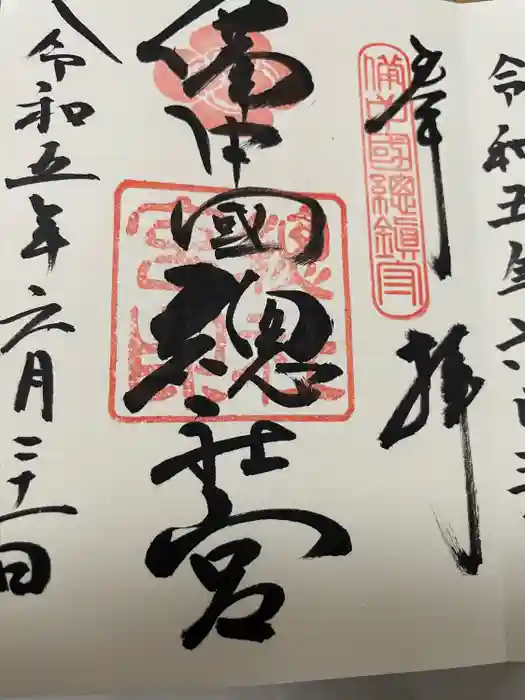 令和五年六月
奉拝
備中國總鎮守
備中國總社宮
令和五年六月二十一日